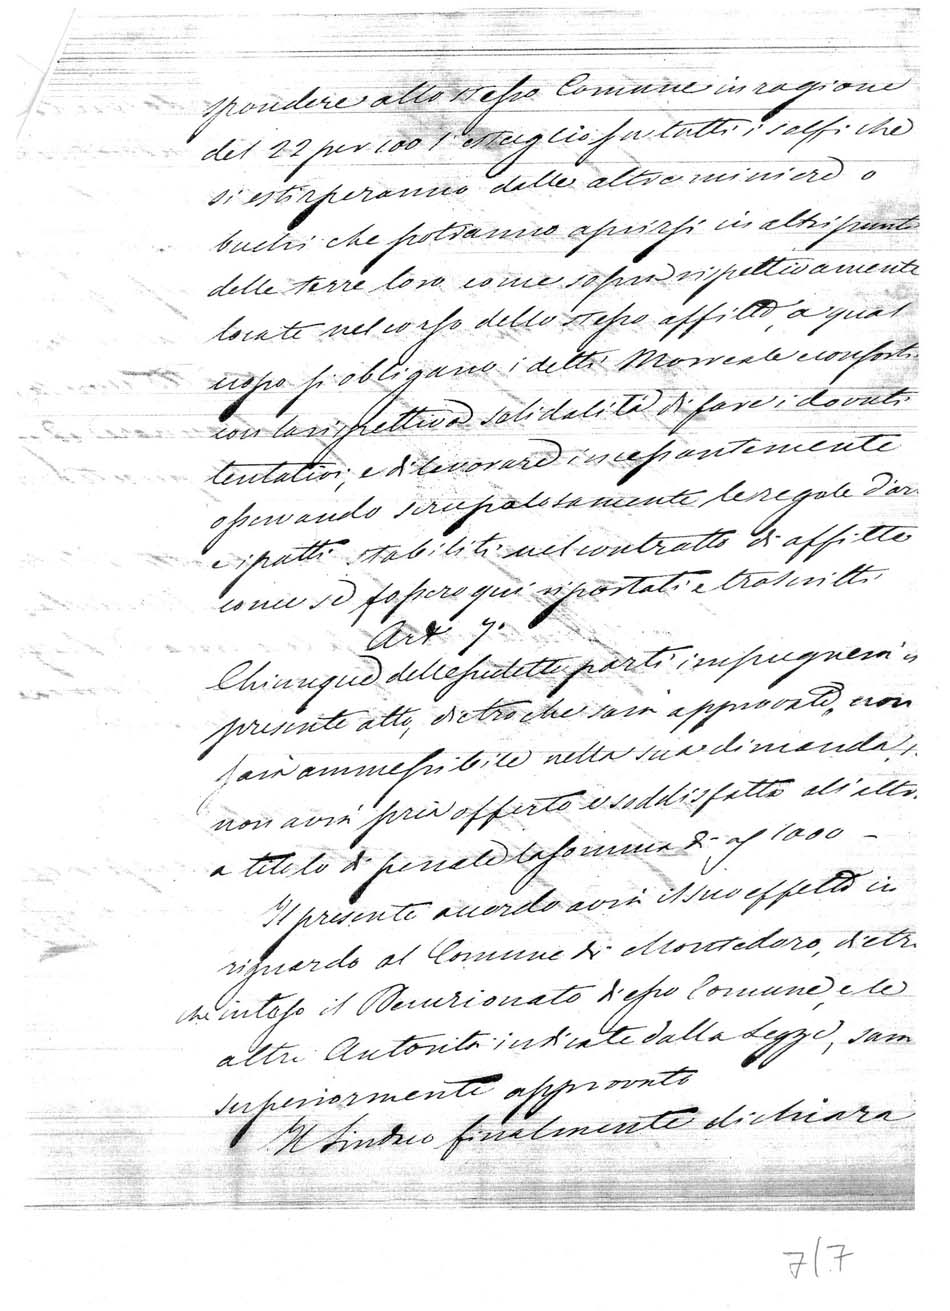 spondere allo stesso Comune in ragione
del 22 per 100 l'estaglio su tutti i solfi che
si estirperanno dalle altre miniere o
buchi che potranno aprirsi in altri punti
delle terre loro come sopra rispettivamente
locate nel corso dello stesso affitto, a qual
uopo si obligano i detti Morreale e consorti
con la rispettiva solidalità di fare i dovuti
tentativi, e di lavorare incessantemente
osservando scrupolosamente le regole d'ar
e i patti stabiliti nel contratto di affitto
come se fossero qui riportati e trascritti
Art. 7.
Chiunque delle sudette parti impugnerà i
presente atto, dietro che sarà approvato, non
sarà ammessibile nella sua dimanda, s
non avrà pria offerto e soddisfatto all'altr.
a titolo di penale la somma di 1000 -
Il presente accordo avrà il suo effetto in
riguardo al Comune di Montedoro, dietr
che inteso il Decurionato di esso Comune, e le
altre Autorità indicate dalla Legge, sarà
superiormente approvato
Il Sindaco finalmente dichiara
7/7